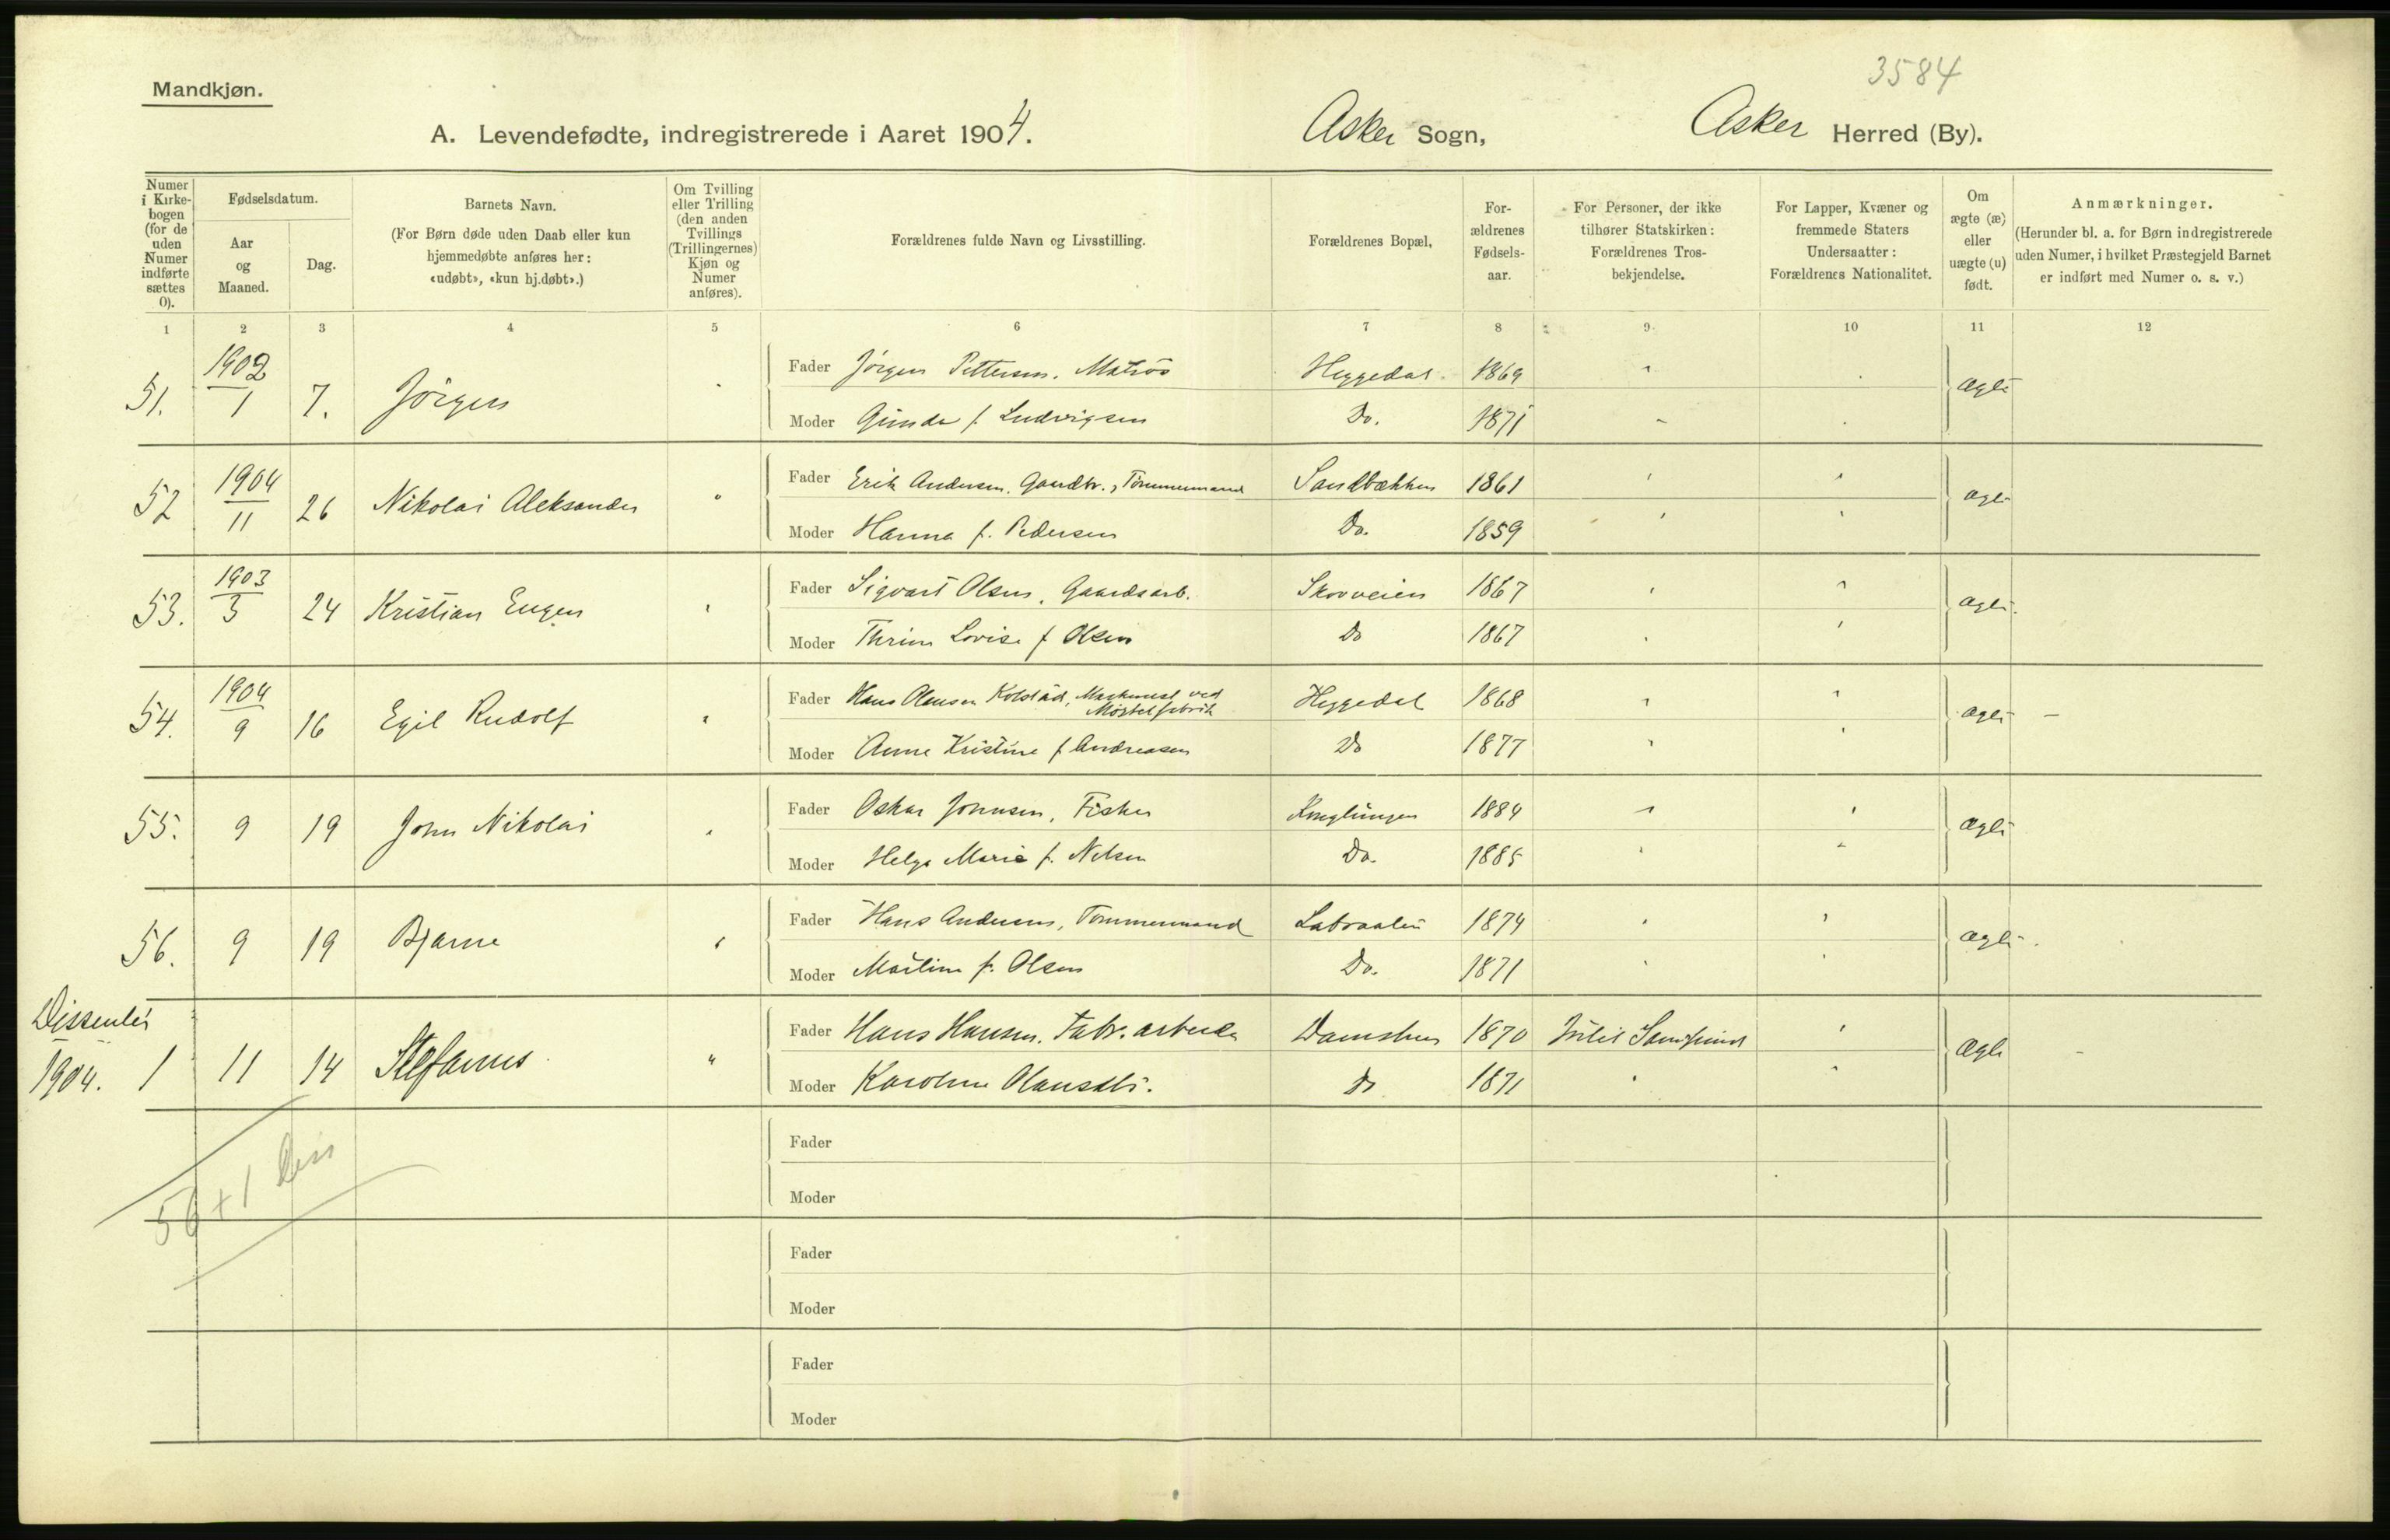 3584
Mandkjøn.
A. Levendefødte, indregistrerede i Aaret 1904. Asker Sogn, Asker Herred (By).
Numer i Kirkebogen (for de uden Numer indførte sættes 0).
Fødselsdatum.
Aar og Maaned.
Dag.
Barnets Navn.
(For Børn døde uden Daab eller kun hjemmedøbte anføres her: «udøbt», «kun hj.døbt».)
Om Tvilling eller Trilling (den anden Tvillings (Trillingernes) Kjøn og Numer anføres).
Forældrenes fulde Navn og Livsstilling.
Forældrenes Bopæl,
For-ældrenes Fødsels-aar.
For Personer, der ikke tilhører Statskirken: Forældrenes Tros-bekjendelse.
For Lapper, Kvæner og fremmede Staters Undersaatter: Forældrenes Nationalitet.
Om ægte (æ) eller uægte (u) født.
Anmærkninger.
(Herunder bl. a. for Børn indregistrerede uden Numer, i hvilket Præstegjeld Barnet er indført med Numer o. s. v.)
1 2 3 4 5 6 7 8 9 10 11 12
51. 1902 1 7. Jörgen Fader Jörgen Pettersen. Matros Heggedal 1869 ægte
Moder Gunda f. Ludvigsen Do. 1871
52 1904 11 26 Nikolai Aleksander Fader Erik Andersen. Gaardbr., Tömmermand Sandbækken 1861 ægte
Moder Hanna f. Pedersen Do. 1859
53. 1903 3 24 Kristian Eugen Fader Sigvart Olsen, Gaardsarb. Skovveien 1867 ægte
Moder Thrine Lovise f Olsen Do 1867
54. 1904 9 16 Egil Rudolf Fader Hans Olausen Kolstad, Maskinist ved Heggedal 1868 ægte –
Moder Anne Kristine f Andreasen Do 1877
55. 9 19 John Nikolai Fader Oskar Johnsen, Fisker 1884 ægte
Moder Helga Marie f. Nelsen Do. 1885
56. 9 19 Bjarne Fader Hans Andersen, Tömmermand Labraaten 1874 ægte
Moder Martine f. Olsen Do. 1871
Dissenter
1904. 1 11 14 Stefanus " Fader Hans Hansen. Fabr. arbeider Damshus 1870 ægte
Moder Karoline Olausdtr. Do 1871
Fader
Moder
56 + 1 Diss
Fader
Moder
Fader
Moder